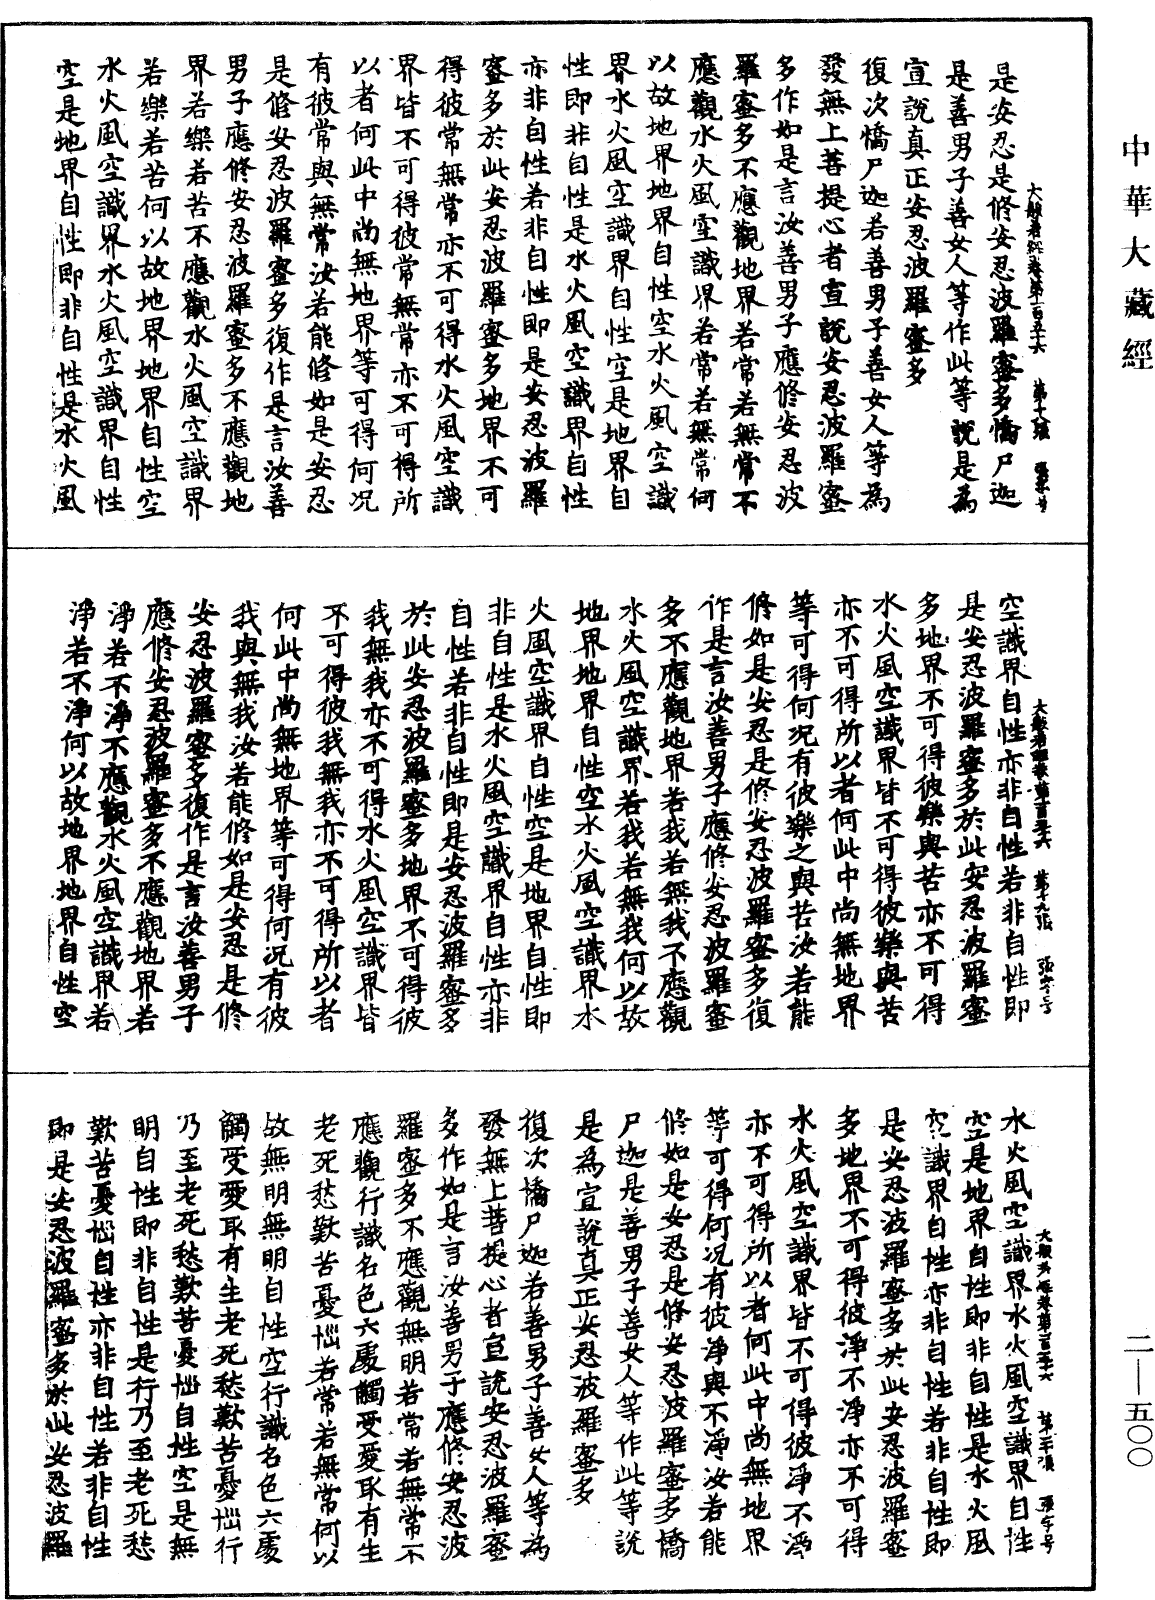 中華大藏經
大般若經卷第一百五十六 第十八張 張字号
是安忍是修安忍波羅蜜多憍尸迦
是善男子善女人等作此等說是為
宣說真正安忍波羅蜜多
復次憍尸迦若善男子善女人等為
發無上菩提心者宣說安忍波羅蜜
多作如是言汝善男子應修安忍波
羅蜜多不應觀地界若常若無常不
應觀水火風空識界若常若無常何
以故地界地界自性空水火風空識
界水火風空識界自性空是地界自
性即非自性是水火風空識界自性
亦非自性若非自性即是安忍波羅
蜜多於此安忍波羅蜜多地界不可
得彼常無常亦不可得水火風空識
界皆不可得彼常無常亦不可得所
以者何此中尚無地界等可得何況
有彼常與無常汝若能修如是安忍
是修安忍波羅蜜多復作是言汝善
男子應修安忍波羅蜜多不應觀地
界若樂若苦不應觀水火風空識界
若樂若苦何以故地界地界自性空
水火風空識界水火風空識界自性
空是地界自性即非自性是水火風
大般若經卷第一百五十六 第十九張 張字号
空識界自性亦非自性若非自性即
是安忍波羅蜜多於此安忍波羅蜜
多地界不可得彼樂與苦亦不可得
水火風空識界皆不可得彼樂與苦
亦不可得所以者何此中尚無地界
等可得何況有彼樂之與苦汝若能
修如是安忍是修安忍波羅蜜多復
作是言汝善男子應修安忍波羅蜜
多不應觀地界若我若無我不應觀
水火風空識界若我若無我何以故
地界地界自性空水火風空識界水
火風空識界自性空是地界自性即
非自性是水火風空識界自性亦非
自性若非自性即是安忍波羅蜜多
於此安忍波羅蜜多地界不可得彼
我無我亦不可得水火風空識界皆
不可得彼我無我亦不可得所以者
何此中尚無地界等可得何況有彼
我與無我汝若能修如是安忍是修
安忍波羅蜜多復作是言汝善男子
應修安忍波羅蜜多不應觀地界若
淨若不淨不應觀水火風空識界若
淨若不淨何以故地界地界自性空
大般若經卷第一百五十六 第二十張 張字号
水火風空識界水火風空識界自性
空是地界自性即非自性是水火風
空識界自性亦非自性若非自性即
是安忍波羅蜜多於此安忍波羅蜜
多地界不可得彼淨不淨亦不可得
水火風空識界皆不可得彼淨不淨
亦不可得所以者何此中尚無地界
等可得何況有彼淨與不淨汝若能
修如是安忍是修安忍波羅蜜多憍
尸迦是善男子善女人等作此等說
是為宣說真正安忍波羅蜜多
復次憍尸迦若善男子善女人等為
發無上菩提心者宣說安忍波羅蜜
多作如是言汝善男子應修安忍波
羅蜜多不應觀無明若常若無常不
應觀行識名色六處觸受愛取有生
老死愁歎苦憂惱若常若無常何以
故無明無明自性空行識名色六處
觸受愛取有生老死愁歎苦憂惱行
乃至老死愁歎苦憂惱自性空是無
明自性即非自性是行乃至老死愁
歎苦憂惱自性亦非自性若非自性
即是安忍波羅蜜多於此安忍波羅
二—五〇〇